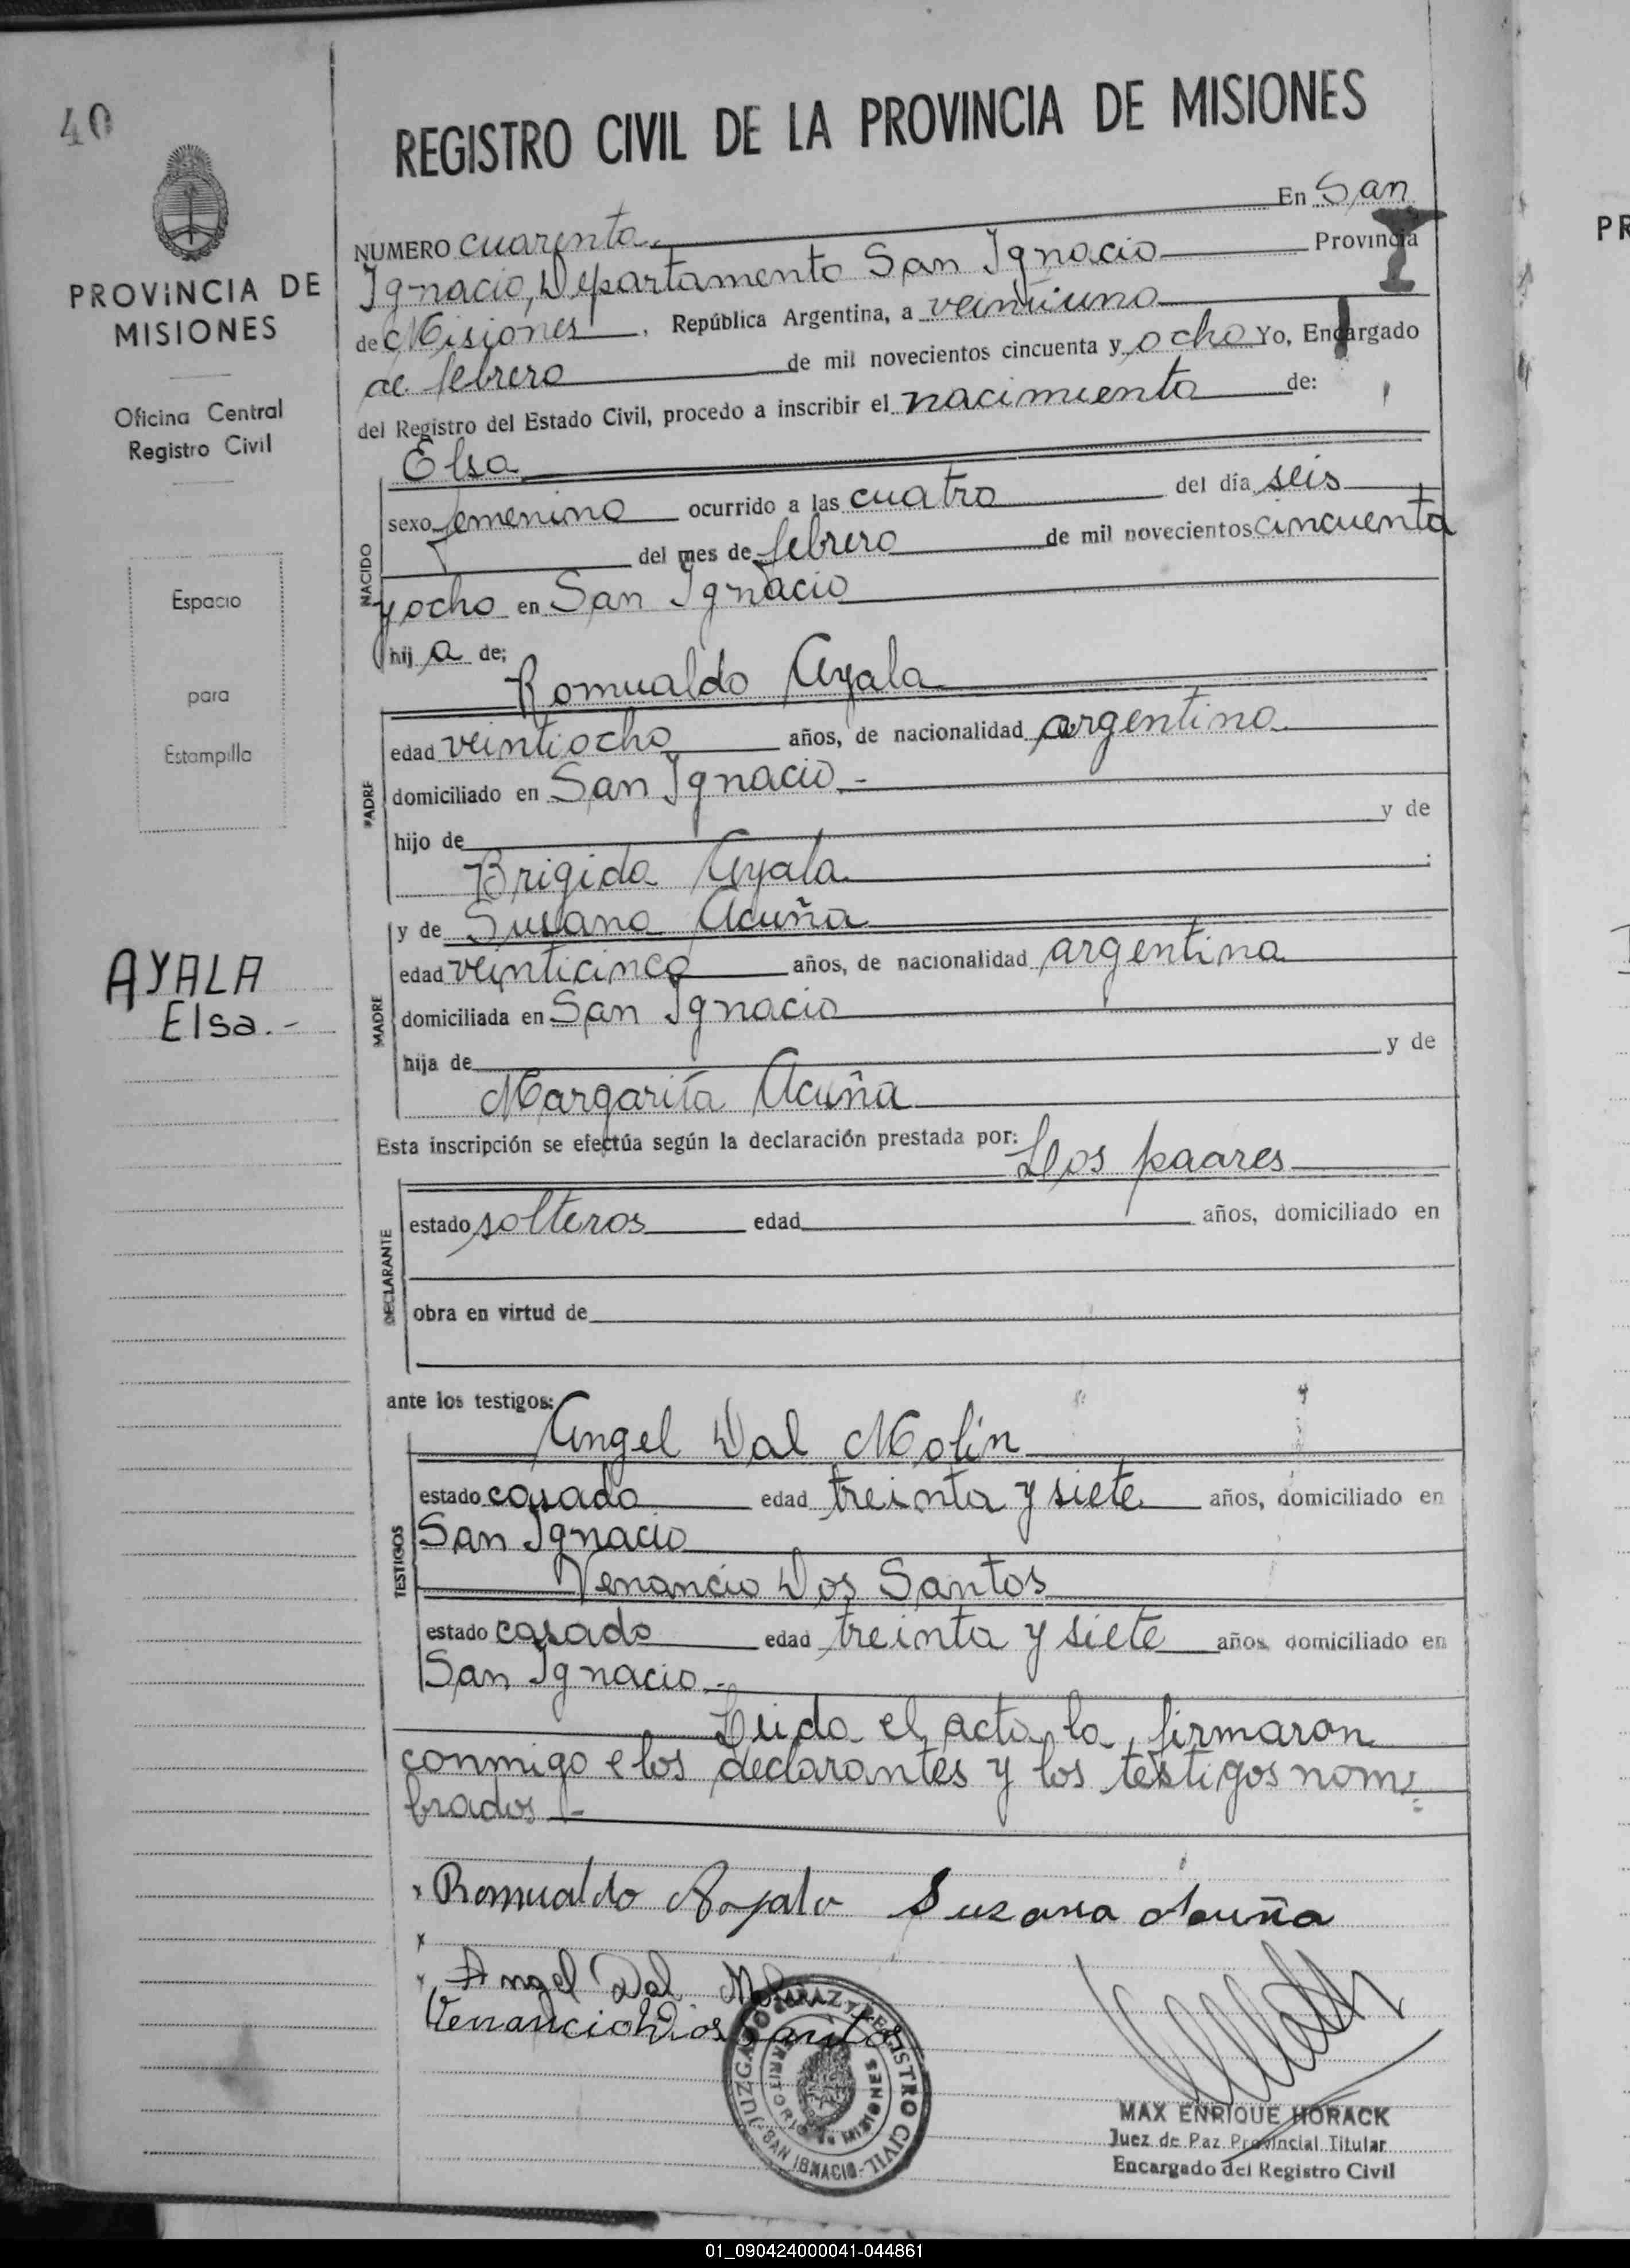 40
REGISTRO CIVIL DE LA PROVINCIA DE MISIONES
PROVINCIA DE
MISIONES
Oficina Central
Registro Civil
Espacio
para
Estampilla
AYALA
Elsa.-
NUMERO cuarenta. En San
Ignacio, Departamento San Ignacio Provincia
de Misiones, República Argentina, a veintiuno
de febrero de mil novecientos cincuenta y ocho Yo, Encargado
del Registro del Estado Civil, procedo a inscribir el nacimiento de:
Elsa
NACIDO
sexo femenino ocurrido a las cuatro del día seis
del mes de febrero de mil novecientos cincuenta
y ocho en San Ignacio
hija de;
Romualdo Ayala
PADRE
edad veintiocho años, de nacionalidad argentino.
domiciliado en San Ignacio.-
hijo de y de
Brigida Ayala
y de Susana Acuña
MADRE
edad veinticinco años, de nacionalidad argentina
domiciliada en San Ignacio
hija de y de
Margarita Acuña
Esta inscripción se efectúa según la declaración prestada por:
Los padres
DECLARANTE
estado solteros edad años, domiciliado en
obra en virtud de
ante los testigos:
Angel Dal Molin
TESTIGOS
estado casado edad treinta y siete años, domiciliado en
San Ignacio
Venancio Dos Santos
estado casado edad treinta y siete años domiciliado en
San Ignacio.-
Leida el acta la firmaron
conmigo e los declarantes y los testigos nom-
brados.-
Romualdo Ayala Suzana Acuña
Angel Dal
Venancio Dos Santos
JUZGADO DE PAZ Y REGISTRO CIVIL - SAN IGNACIO -
TERRITORIO DE MISIONES
MAX ENRIQUE HORACK
Juez de Paz Provincial Titular
Encargado del Registro Civil
PR
01_090424000041-044861